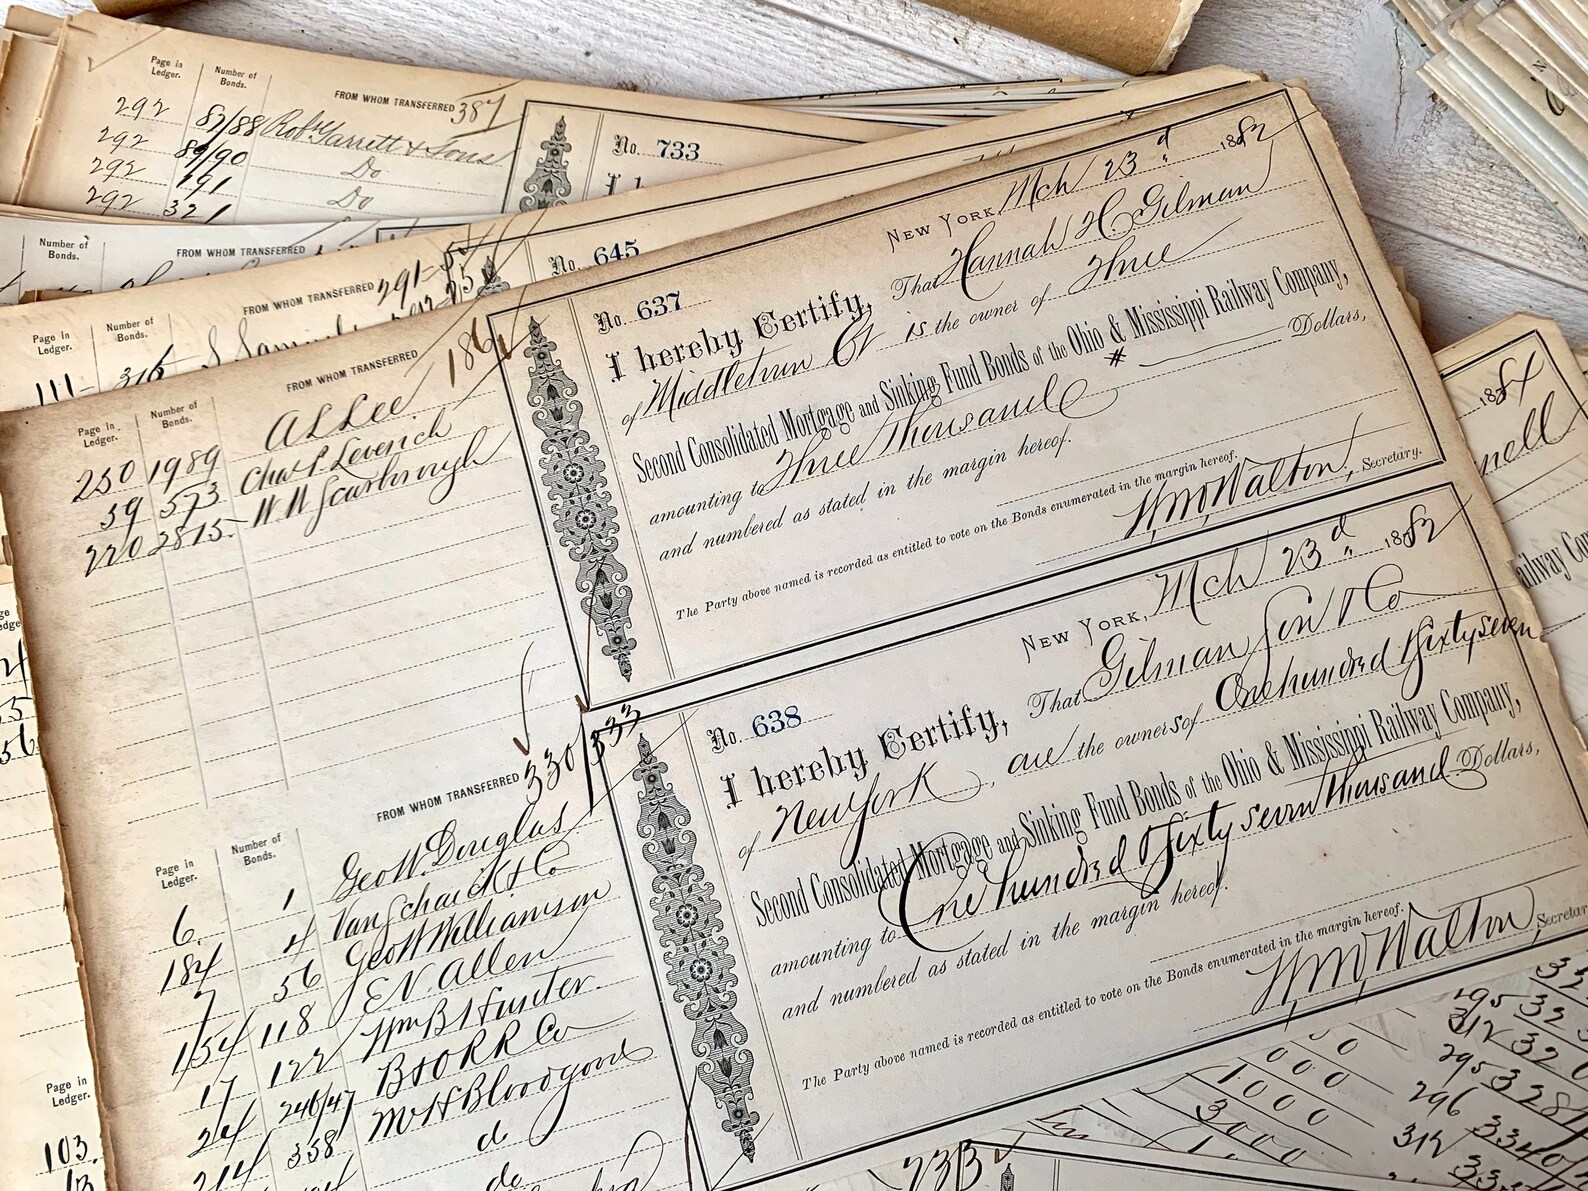 Page in Ledger.
Number of Bonds.
FROM WHOM TRANSFERRED 387
292 87/88 Robt Garrett & Sons
292 89/90 Do
292 191 Do
292 321
No. 733
Number of Bonds.
FROM WHOM TRANSFERRED
No. 645
Page in Ledger.
Number of Bonds.
FROM WHOM TRANSFERRED
111 316
FROM WHOM TRANSFERRED 186
Page in Ledger.
Number of Bonds.
250 1989 A L Lee
59 573 Chas P Leverich
220 2815 W W Scarbrough
No. 637
NEW YORK, Mch 23d 1882
I hereby Certify, That Hannah H Gilman
of Middletown Ct is the owner of Three
Second Consolidated Mortgage and Sinking Fund Bonds of the Ohio & Mississippi Railway Company,
amounting to Three Thousand Dollars,
and numbered as stated in the margin hereof.
The Party above named is recorded as entitled to vote on the Bonds enumerated in the margin hereof.
W. M. Walton, Secretary.
FROM WHOM TRANSFERRED 330/533
Page in Ledger.
Number of Bonds.
6. 1 Geo W. Douglas
184 4 Van Schaick & Co
7 56 Geo W Williamson
154 118 E N Allen
17 122 Wm B Hunter.
24 246/47 B & O R R Co
214 358 M H Bloodgood
do
do
No. 638
NEW YORK, Mch 23d 1882
I hereby Certify, That Gilman Son & Co
of New York, are the owners of One hundred & Sixty seven
Second Consolidated Mortgage and Sinking Fund Bonds of the Ohio & Mississippi Railway Company,
amounting to One hundred & Sixty seven thousand Dollars,
and numbered as stated in the margin hereof.
The Party above named is recorded as entitled to vote on the Bonds enumerated in the margin hereof.
W. M. Walton, Secretar
1884
nell
ailway Co
Page in Ledger.
103.
295 32
312 32
295 328
296
312 3340
1000
3000